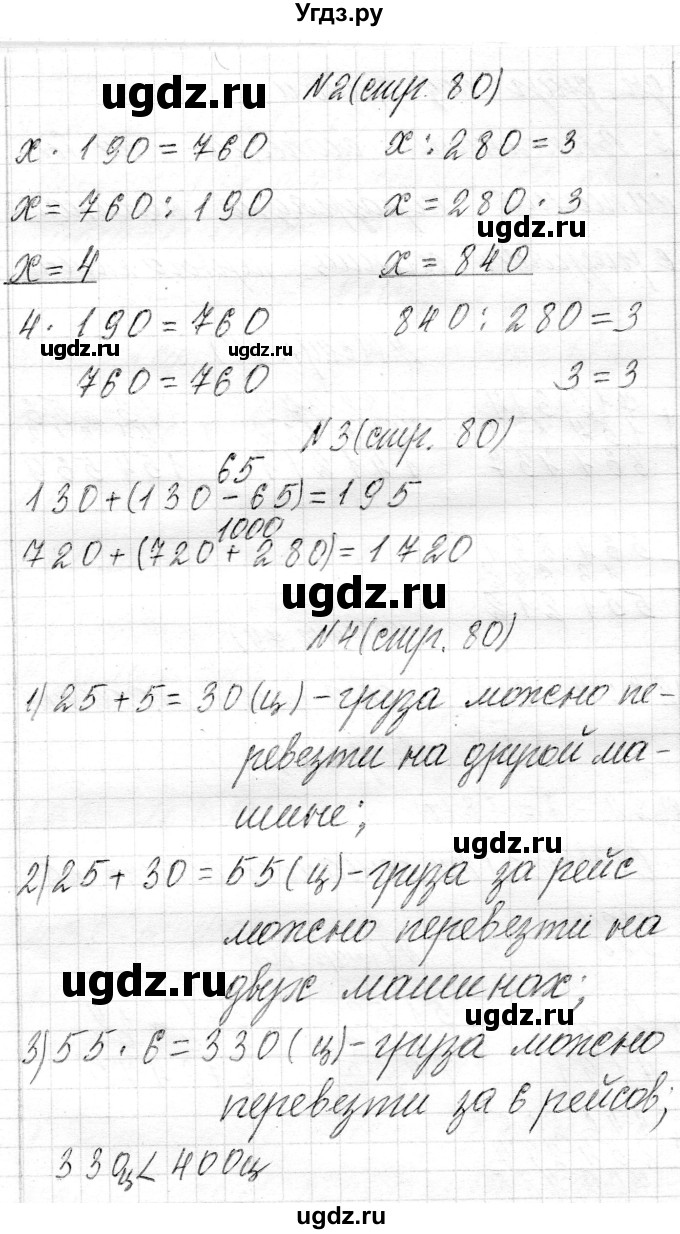 Угдз.ру
ugdz.ru
№2(стр. 80)
x · 190 = 760
x : 280 = 3
x = 760 : 190
x = 280 · 3
ugdz.ru
x = 4
x = 840
4 · 190 = 760
840 : 280 = 3
ugdz.ru
ugdz.ru
760 = 760
3 = 3
№3(стр. 80)
65
130+(130 - 65)=195
1000
720+(720 + 280)=1720
ugdz.ru
№4(стр. 80)
1) 25 + 5 = 30 (ц) - груза можно пе-
ревезти на другой ма-
шине;
ugdz.ru
2) 25 + 30 = 55 (ц) - груза за рейс
можно перевезти на
ugdz.ru
двух машинах;
ugdz.ru
3) 55 · 6 = 330 (ц) - груза можно
перевезти за 6 рейсов;
330ц < 400ц
ugdz.ru